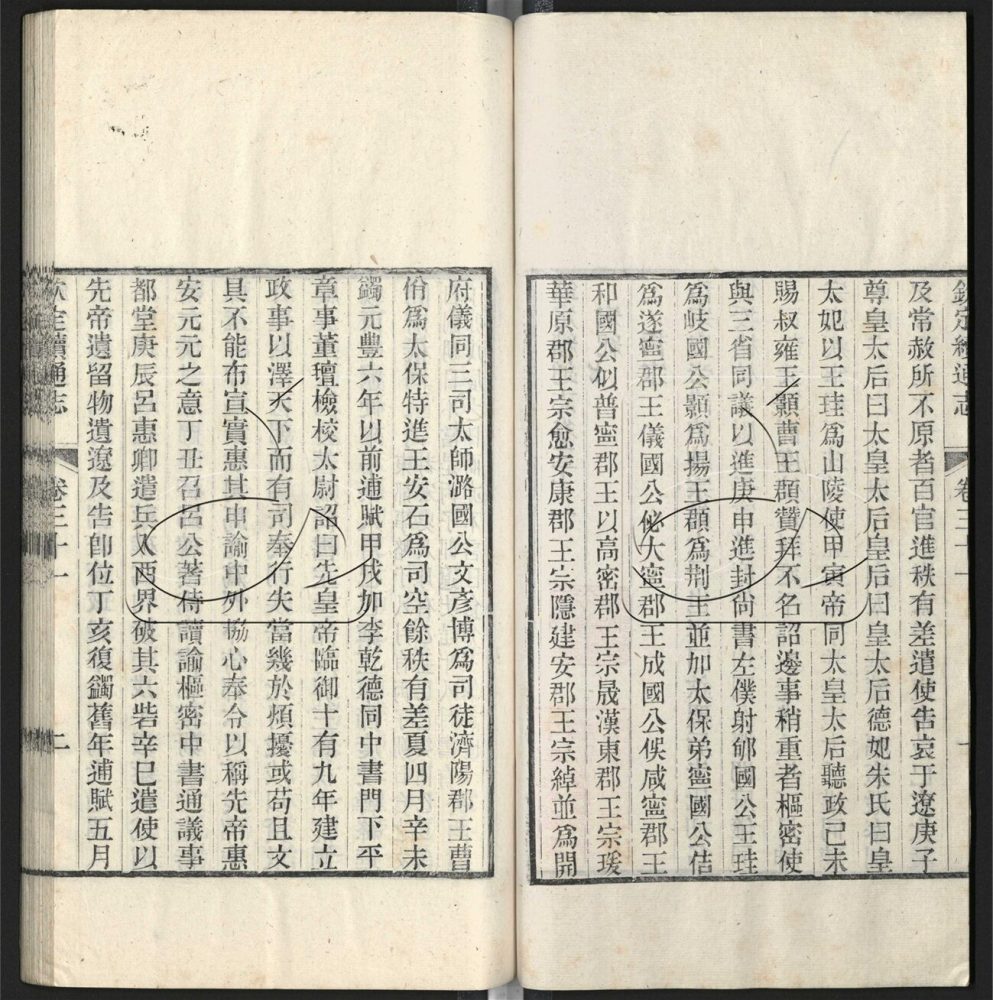 欽定續通志 卷三十一 一
及常赦所不原者百官進秩有差遣使告哀于遼庚子
尊皇太后曰太皇太后皇后曰皇太后德妃朱氏曰皇
太妃以王珪爲山陵使甲寅帝同太皇太后聽政己未
賜叔雍王顥曹王頵贊拜不名詔邊事稍重者樞密使
與三省同議以進庚申進封尙書左僕射郇國公王珪
爲岐國公顥爲揚王頵爲荆王並加太保弟寧國公佶
爲遂寧郡王儀國公佖大寧郡王成國公俁咸寧郡王
和國公似普寧郡王以高密郡王宗晟漢東郡王宗瑗
華原郡王宗愈安康郡王宗隱建安郡王宗綽並爲開
府儀同三司太師潞國公文彥博爲司徒濟陽郡王曹
佾爲太保特進王安石爲司空餘秩有差夏四月辛未
蠲元豐六年以前逋賦甲戌加李乾德同中書門下平
章事董氊檢校太尉詔曰先皇帝臨御十有九年建立
政事以澤天下而有司奉行失當幾於煩擾或苟且文
具不能布宣實惠其申諭中外協心奉令以稱先帝惠
安元元之意丁丑召呂公著侍讀諭樞密中書通議事
都堂庚辰呂惠卿遣兵入西界破其六砦辛巳遣使以
先帝遺留物遺遼及告卽位丁亥復蠲舊年逋賦五月
欽定續通志 卷三十一 二